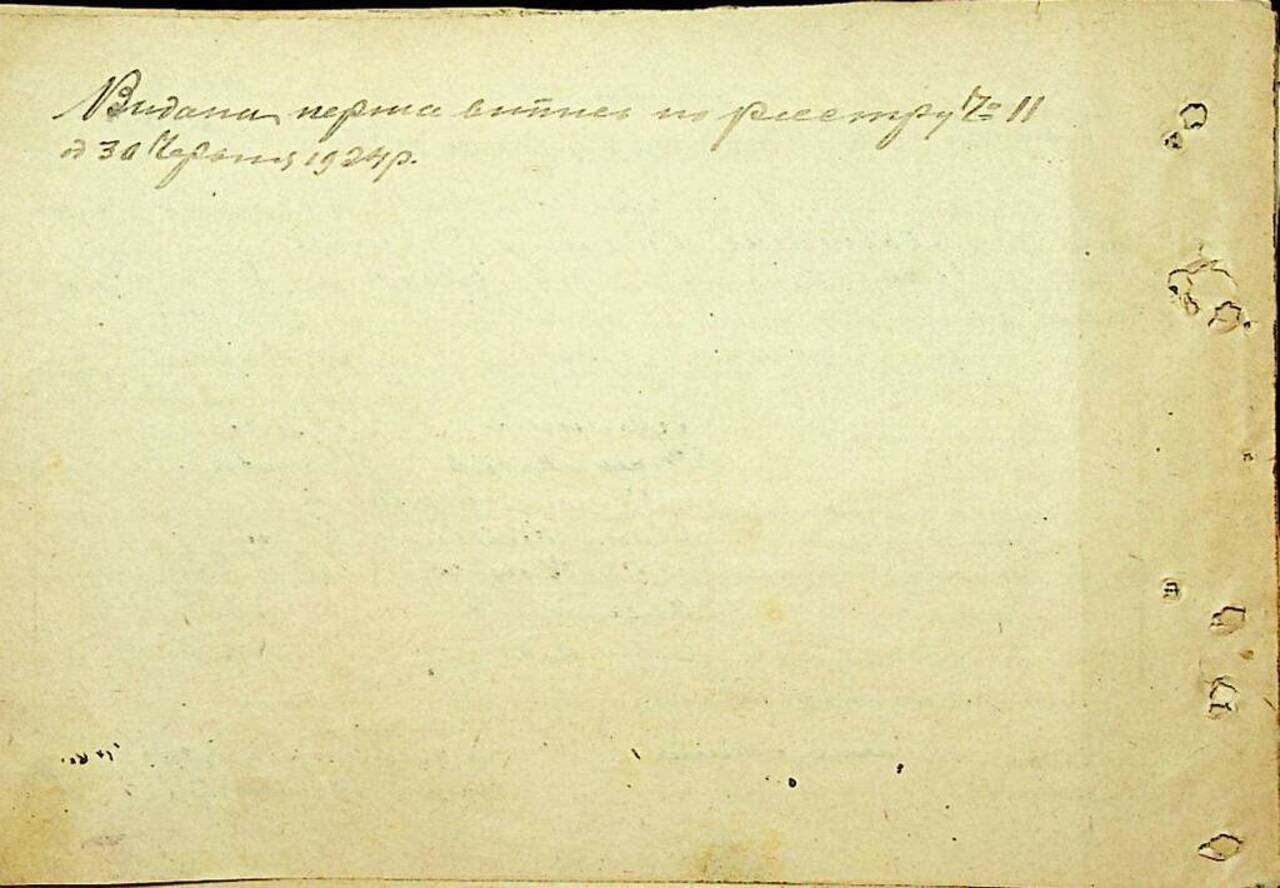 Видана перша випись по реестру № 11
од 30 Червня 1924 р.